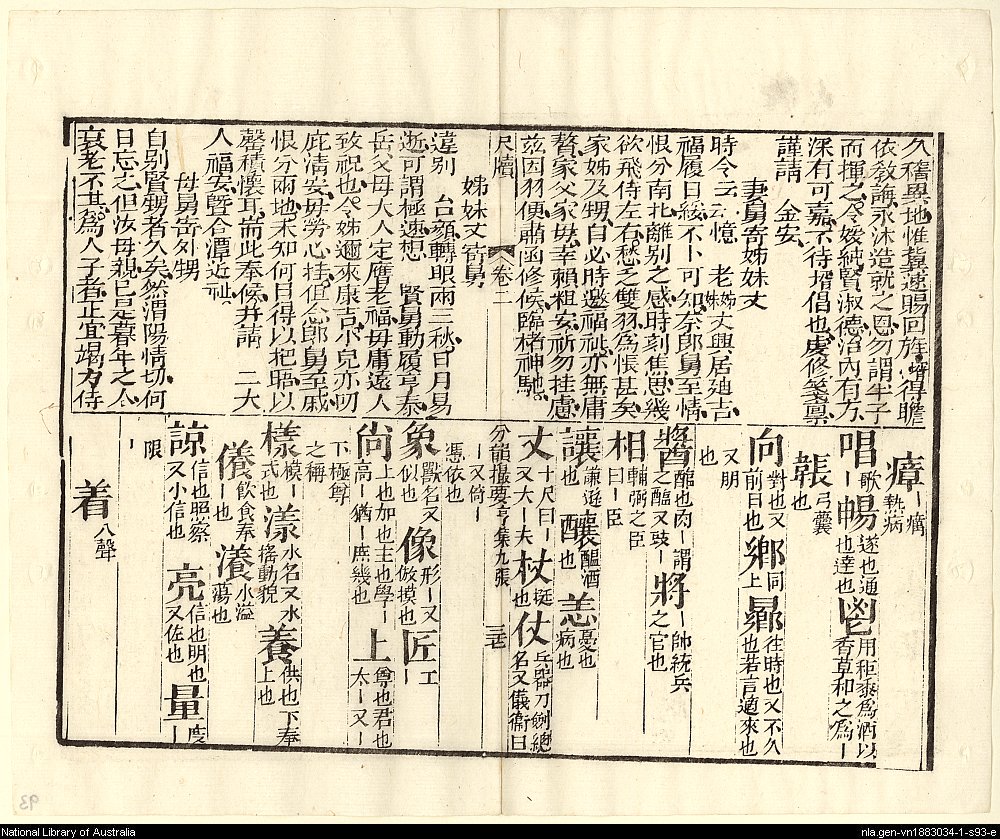 久稽異地惟冀速賜回旌壻得瞻
依教誨永沐造就之恩勿謂半子
而揮之令嫒純賢淑德治內有方
深有可嘉不待壻倡也虔修箋禀
謹請　金安
妻舅寄姊妹丈
時令云云憶　老姊妹丈興居廸吉
福履日綏不卜可知奈郎舅至情
恨分南北離別之感時刻焦思幾
欲飛侍左右愁乏雙羽為悵甚矣
家姊及甥自必時邀福祉亦無庸
贅家父家母幸賴粗安祈勿挂慮
玆因羽便肅函修候臨楮神馳
尺牘　卷二
姊妹丈寄舅
違別　台顏轉眼兩三秋日月易
逝可謂極速想　賢舅動履亨泰
岳父母大人定膺老福毋庸遠人
致祝也令姊邇來康吉小兒亦叨
庇清安毋勞心挂但念郎舅至戚
恨分兩地未知何日得以把晤以
罄積懷耳耑此奉候并請　二大
人福安曁合潭近祉
母舅寄外甥
自別賢甥者久矣然渭陽情切何
日忘之但汝母親已是暮年之人
衰老不甚為人子者正宜竭力侍
瘴｜癘熱病
唱歌｜暢遂也通也達也鬯用秬黍為酒以香草和之為｜
韔弓囊也
向對也又前日也鄉同上曏往時也又不久也若言適來也
又朋也
醬醢也肉｜謂之醢又豉｜將｜帥統兵之官也
相輔弼之臣曰｜臣
讓謙遜也釀醖酒也恙憂也病也
丈十尺曰｜又大｜夫杖挺也仗兵器刀劍總名又儀衛曰
｜又倚｜
分韻撮要亨集九張　三七
憑依也
象獸名又似也像形｜又倣摸也匠工｜
尚上也加也主也學｜高｜猶｜庶幾也上尊也君也太｜又｜
下極尊之稱
樣模｜式也漾水名又水搖動貌養供也下奉上也
儀飲食奉｜也瀁水溢蕩也
諒信也照察又小信也亮信也明也又佐也量度｜
｜限
着入聲
National Library of Australia
nla.gen-vn1883034-1-s93-e
93